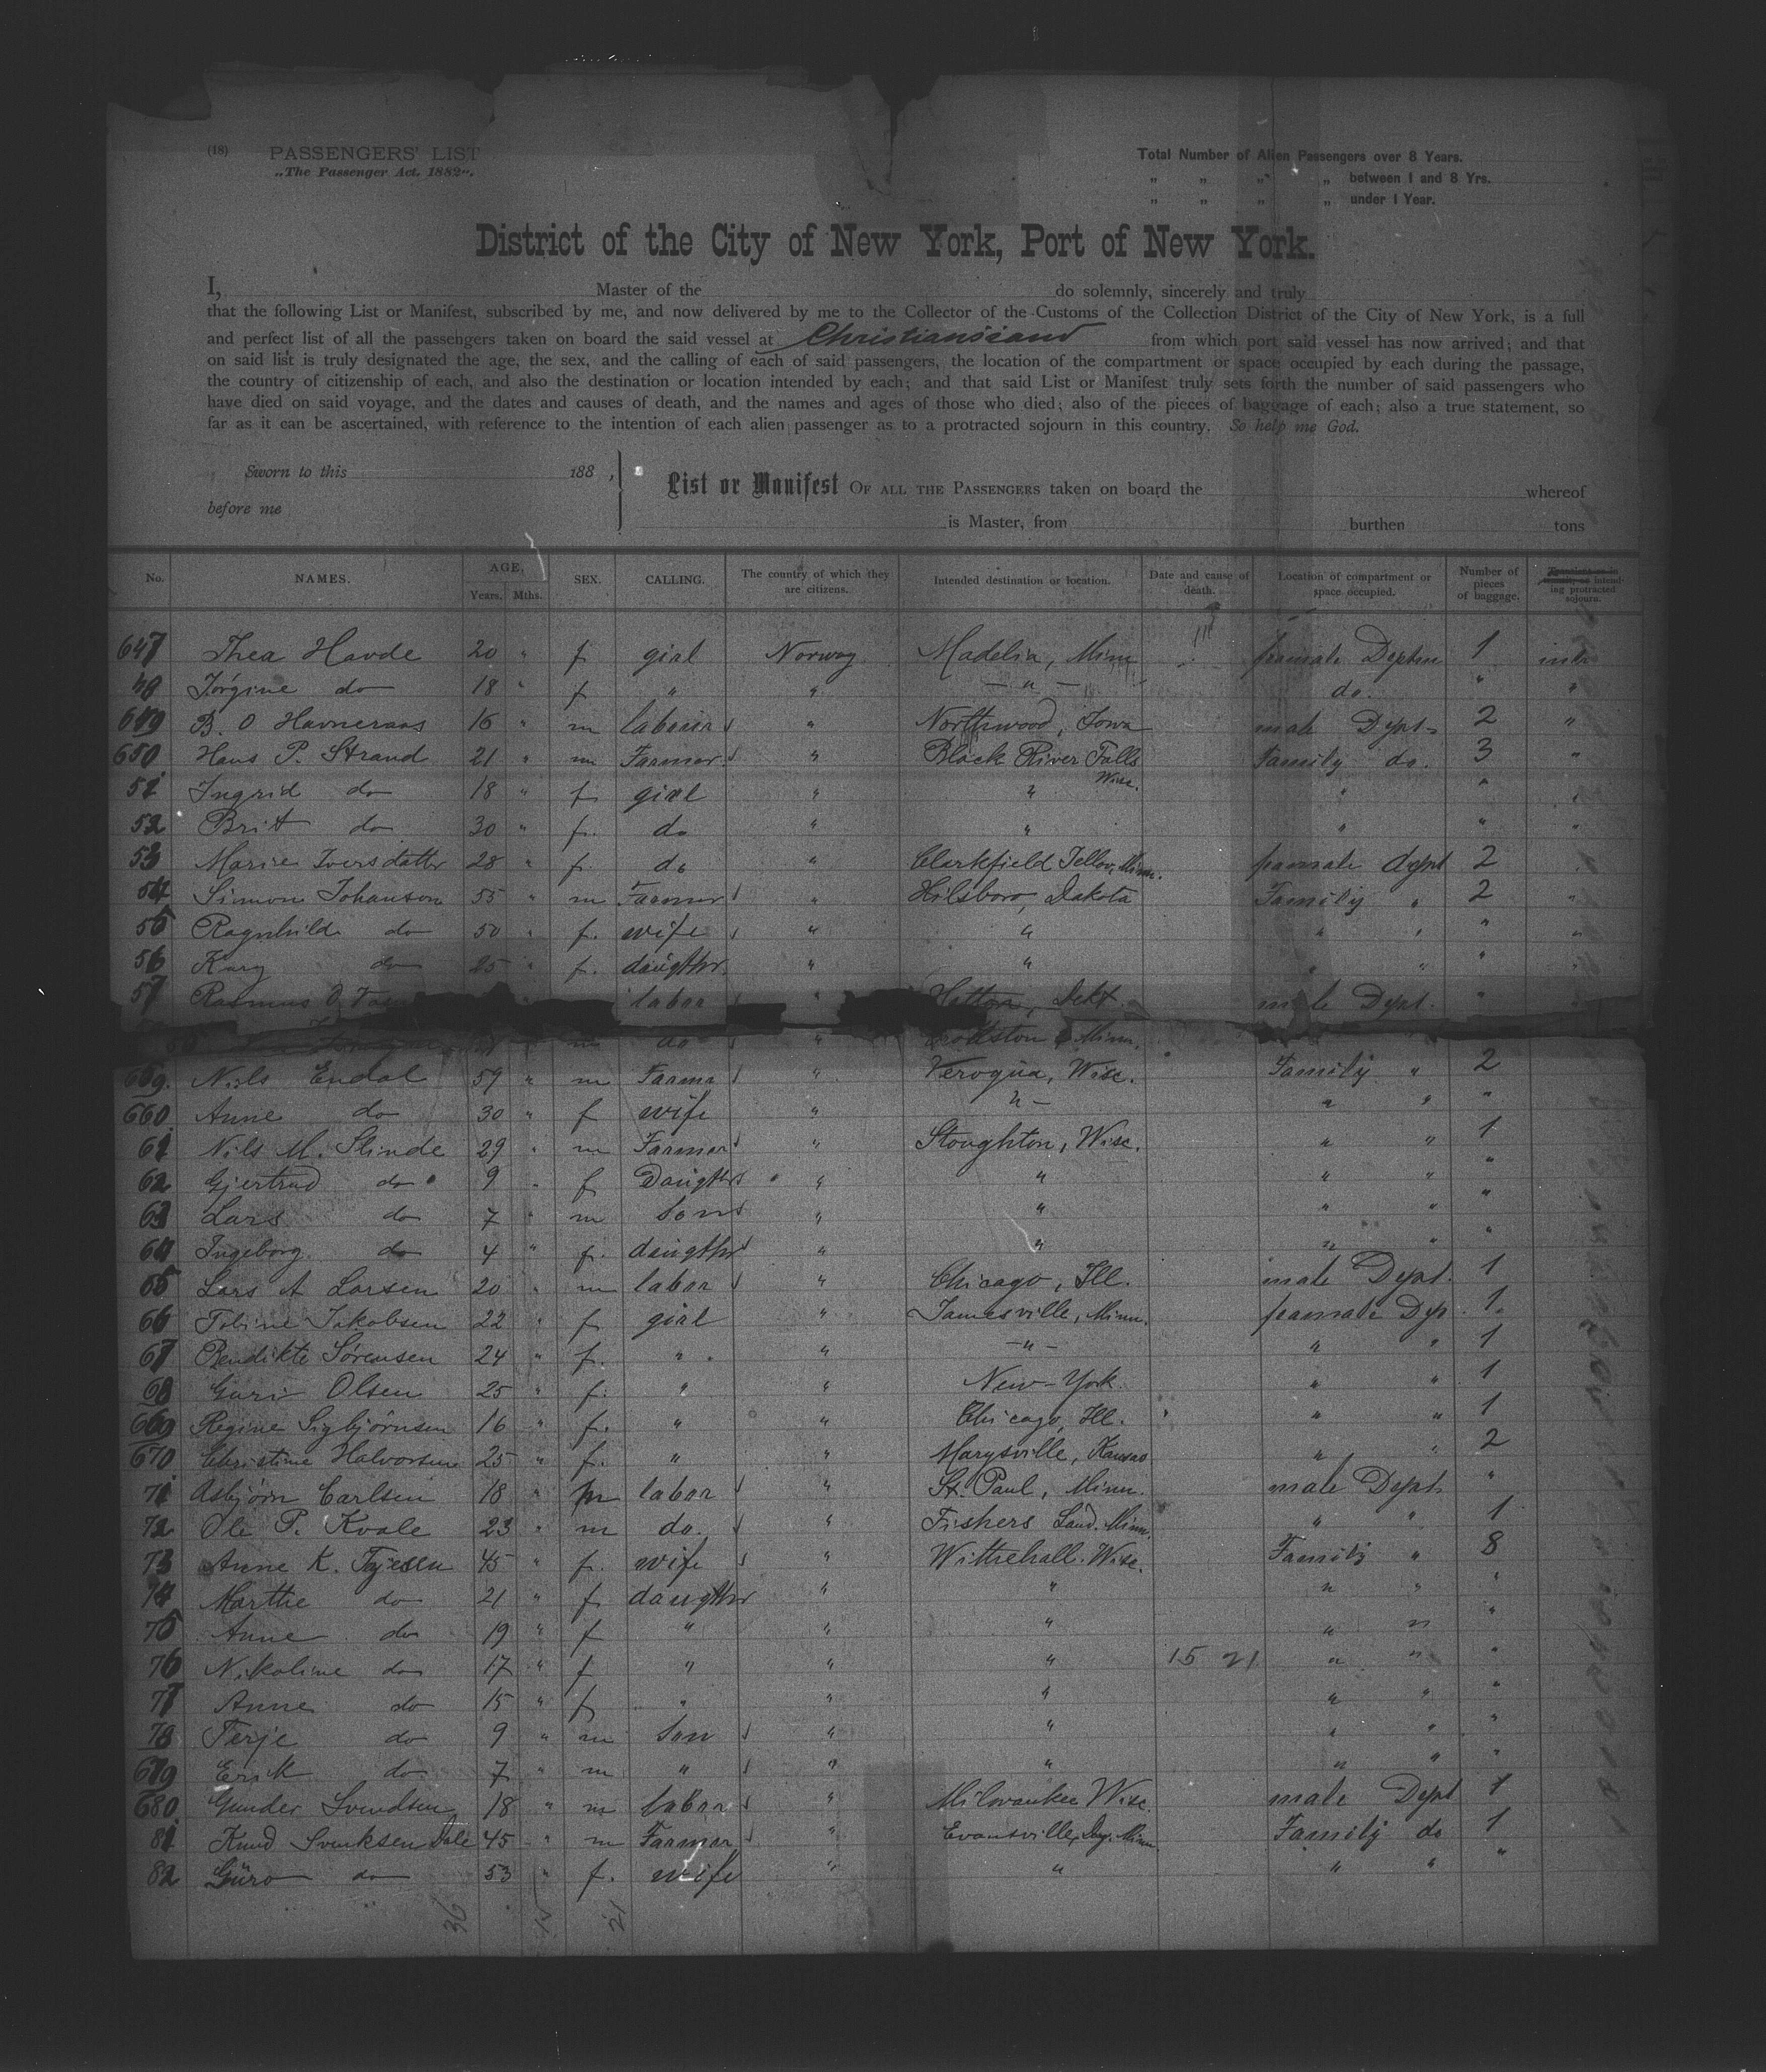 (18) PASSENGERS' LIST
„The Passenger Act, 1882".
Total Number of Alien Passengers over 8 Years.
„ „ „ „ between 1 and 8 Yrs.
„ „ „ „ under 1 Year.
District of the City of New York, Port of New York.
I, Master of the do solemnly, sincerely and truly
that the following List or Manifest, subscribed by me, and now delivered by me to the Collector of the Customs of the Collection District of the City of New York, is a full
and perfect list of all the passengers taken on board the said vessel at Christianssand from which port said vessel has now arrived; and that
on said list is truly designated the age, the sex, and the calling of each of said passengers, the location of the compartment or space occupied by each during the passage,
the country of citizenship of each, and also the destination or location intended by each; and that said List or Manifest truly sets forth the number of said passengers who
have died on said voyage, and the dates and causes of death, and the names and ages of those who died; also of the pieces of baggage of each; also a true statement, so
far as it can be ascertained, with reference to the intention of each alien passenger as to a protracted sojourn in this country. So help me God.
Sworn to this 188 ,
before me
List or Manifest OF ALL THE PASSENGERS taken on board the whereof
is Master, from burthen tons
No. NAMES. AGE, Years, Mths. SEX. CALLING. The country of which they are citizens. Intended destination or location. Date and cause of death. Location of compartment or space occupied. Number of pieces of baggage. intending protracted sojourn.
647 Thea Havde 20 " f girl Norway Madelia, Minn famale Deptm 1
48 Jorgine do 18 " f " " — " — do. " "
649 B. O Havneraas 16 " m labour " Northwood, Iowa male Dept. 2 "
650 Hans P. Strand 21 " m Farmer " Black River Falls Wisc. Family do. 3 "
51 Ingrid do 18 " f girl " " " " "
52 Brit do 30 " f. do " " " " "
53 Marie Iversdatter 28 " f. do " Clarkfield Minn. famale dept 2
54 Simon Johanson 55 " m Farmer " Hilsboro, Dakota Family " 2 "
55 Ragnhild do 50 " f. wife " " " " " "
56 Kary do 25 " f. daugthr " " " " " "
57 Rasmus O labor " Hatton, Dekt. male Dept. " "
m do " Minn.
659. Nils Endal 59 " m Farma " Veroqua, Wisc. Family " 2
660. Anne do 30 " f wife " " — " " "
61 Nils M. Slinde 29 " m Farmer " Stoughton, Wisc. " " 1
62 Gjertrud do 9 " f Daugthr " " " " "
63 Lars do 7 " m Son " " " " "
64 Ingeborg do 4 " f. daugthr " " " " "
65 Lars A Larsen 20 " m labor " Chicago, Ill. male Dept. 1
66 Tobine Jakobsen 22 " f girl " Jamesville, Minn. famale Dep. 1.
67 Bendikte Sørensen 24 " f. " " — " — " " 1
68 Guri Olsen 25 " f. " " New-York. " " 1
669 Regine Sigbjørnsen 16 " f. " " Chicago, Ill. " " 1
670 Christine Halvorsen 25 " f. " " Marysville, Kansas " " 2
71 Asbjørn Carlsen 18 " m labor " St. Paul, Minn. male Dept. "
72 Ole P. Kvale 23 " m do. " Fishers Land. Minn. " " 1
73 Anne K. 45 " f. wife " Wittehall. Wisc. Family " 8
74 Marthe do 21 " f daugthr " " " " "
75 Anne do 19 " f " " " " " "
76 Nikoline do 17 " f " " " 15 21 " " "
77 Anne do 15 " f " " " " " "
78 Terje do 9 " m Son " " " " "
679 Erik do 7 " m " " " " " "
680 Gunder Svendsen 18 " m labor " Milwaukee Wisc. male Dept 1
81 Knud Svenksen Dale 45 " m Farmer " Evansville, Minn. Family do 1
82 Guro do 53 " f. wife " " " " "
36 15 21